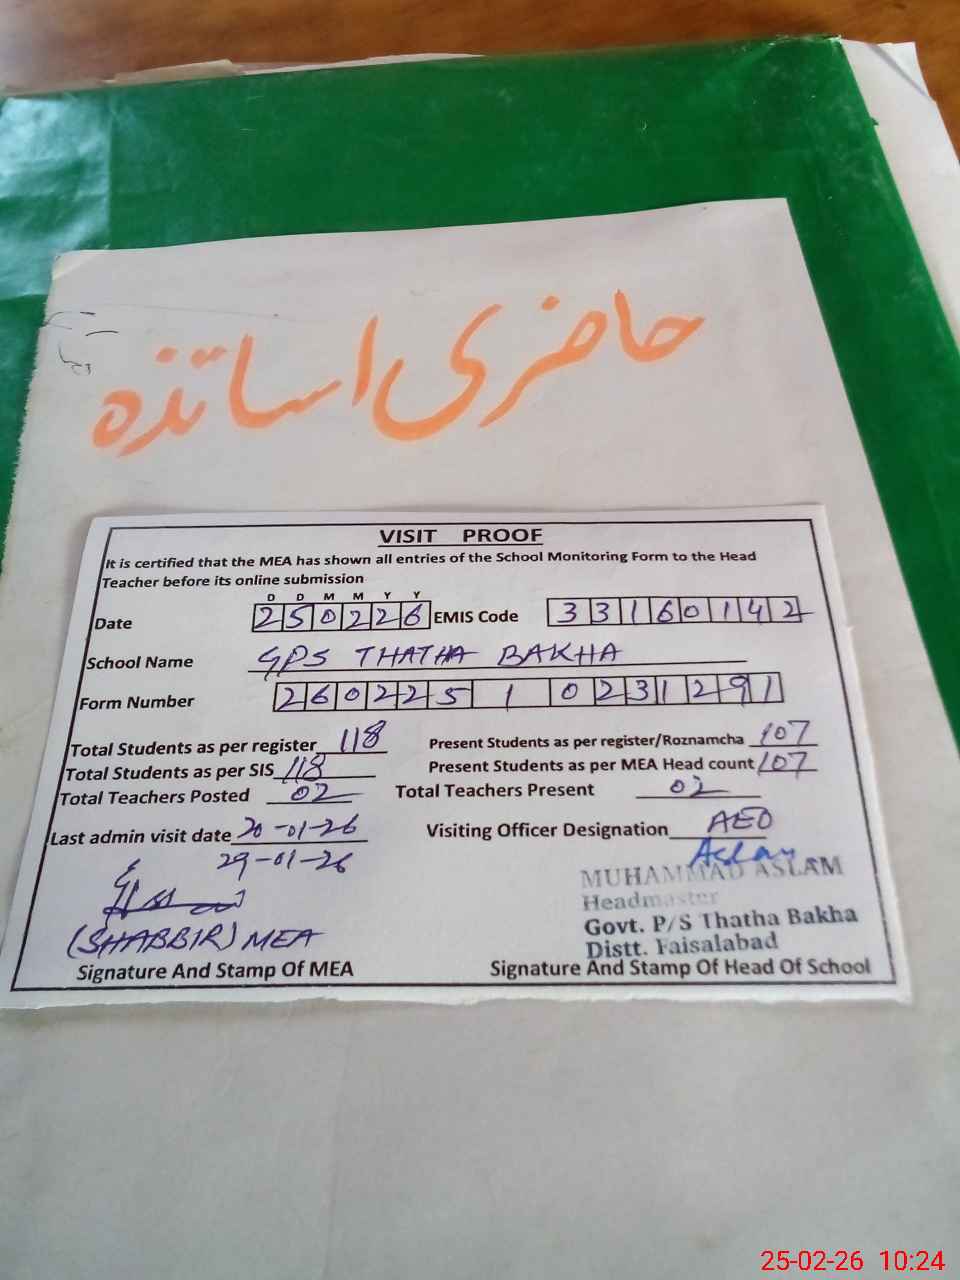 حاضری اساتذہ
VISIT PROOF
It is certified that the MEA has shown all entries of the School Monitoring Form to the Head
Teacher before its online submission
D D M M Y Y
Date 250226 EMIS Code 33160142
School Name GPS THATHA BAKHA
Form Number 260225 1 0231291
Total Students as per register 118 Present Students as per register/Roznamcha 107
Total Students as per SIS 118 Present Students as per MEA Head count 107
Total Teachers Posted 02 Total Teachers Present 02
Last admin visit date 20-01-26 Visiting Officer Designation AEO
29-01-26 Aslam
MUHAMMAD ASLAM
Headmaster
Govt. P/S Thatha Bakha
(SHABBIR) MEA Distt. Faisalabad
Signature And Stamp Of MEA Signature And Stamp Of Head Of School
25-02-26 10:24